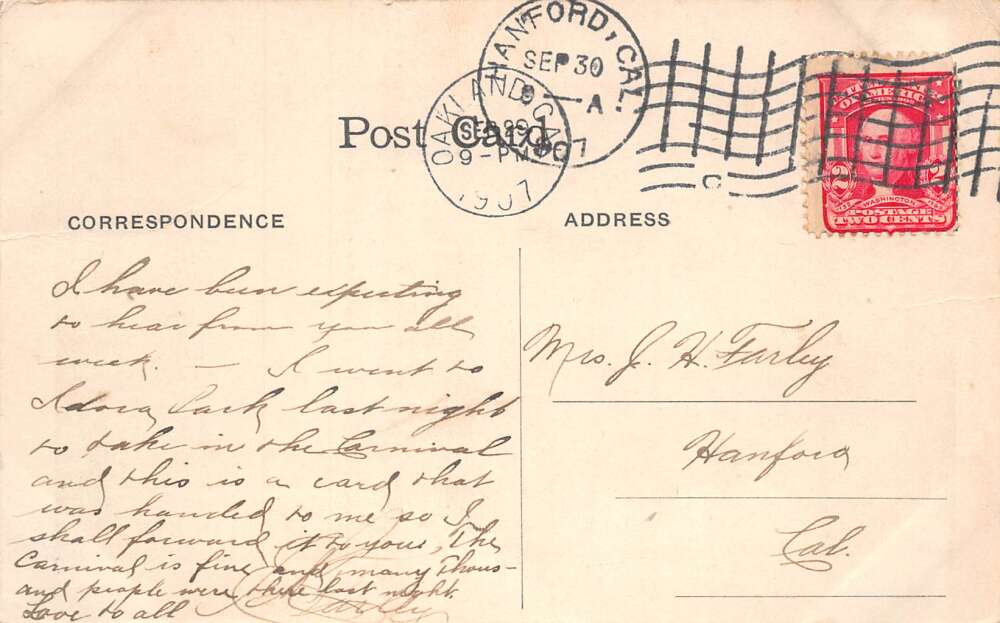 HANFORD, CAL.
SEP 30
8 — A
1907
OAKLAND CAL
SEP 29
9 - PM
1907
Post Card
UNITED STATES
OF AMERICA
2 2
WASHINGTON
POSTAGE
TWO CENTS
C
CORRESPONDENCE
ADDRESS
I have been expecting
to hear from you all
week. — I went to
Idora Park last night
to take in the Carnival
and this is a card that
was handed to me so I
shall forward it to you, The
Carnival is fine and many thous-
and people were there last night
Love to all
Mrs. J. H. Farley
Hanford
Cal.